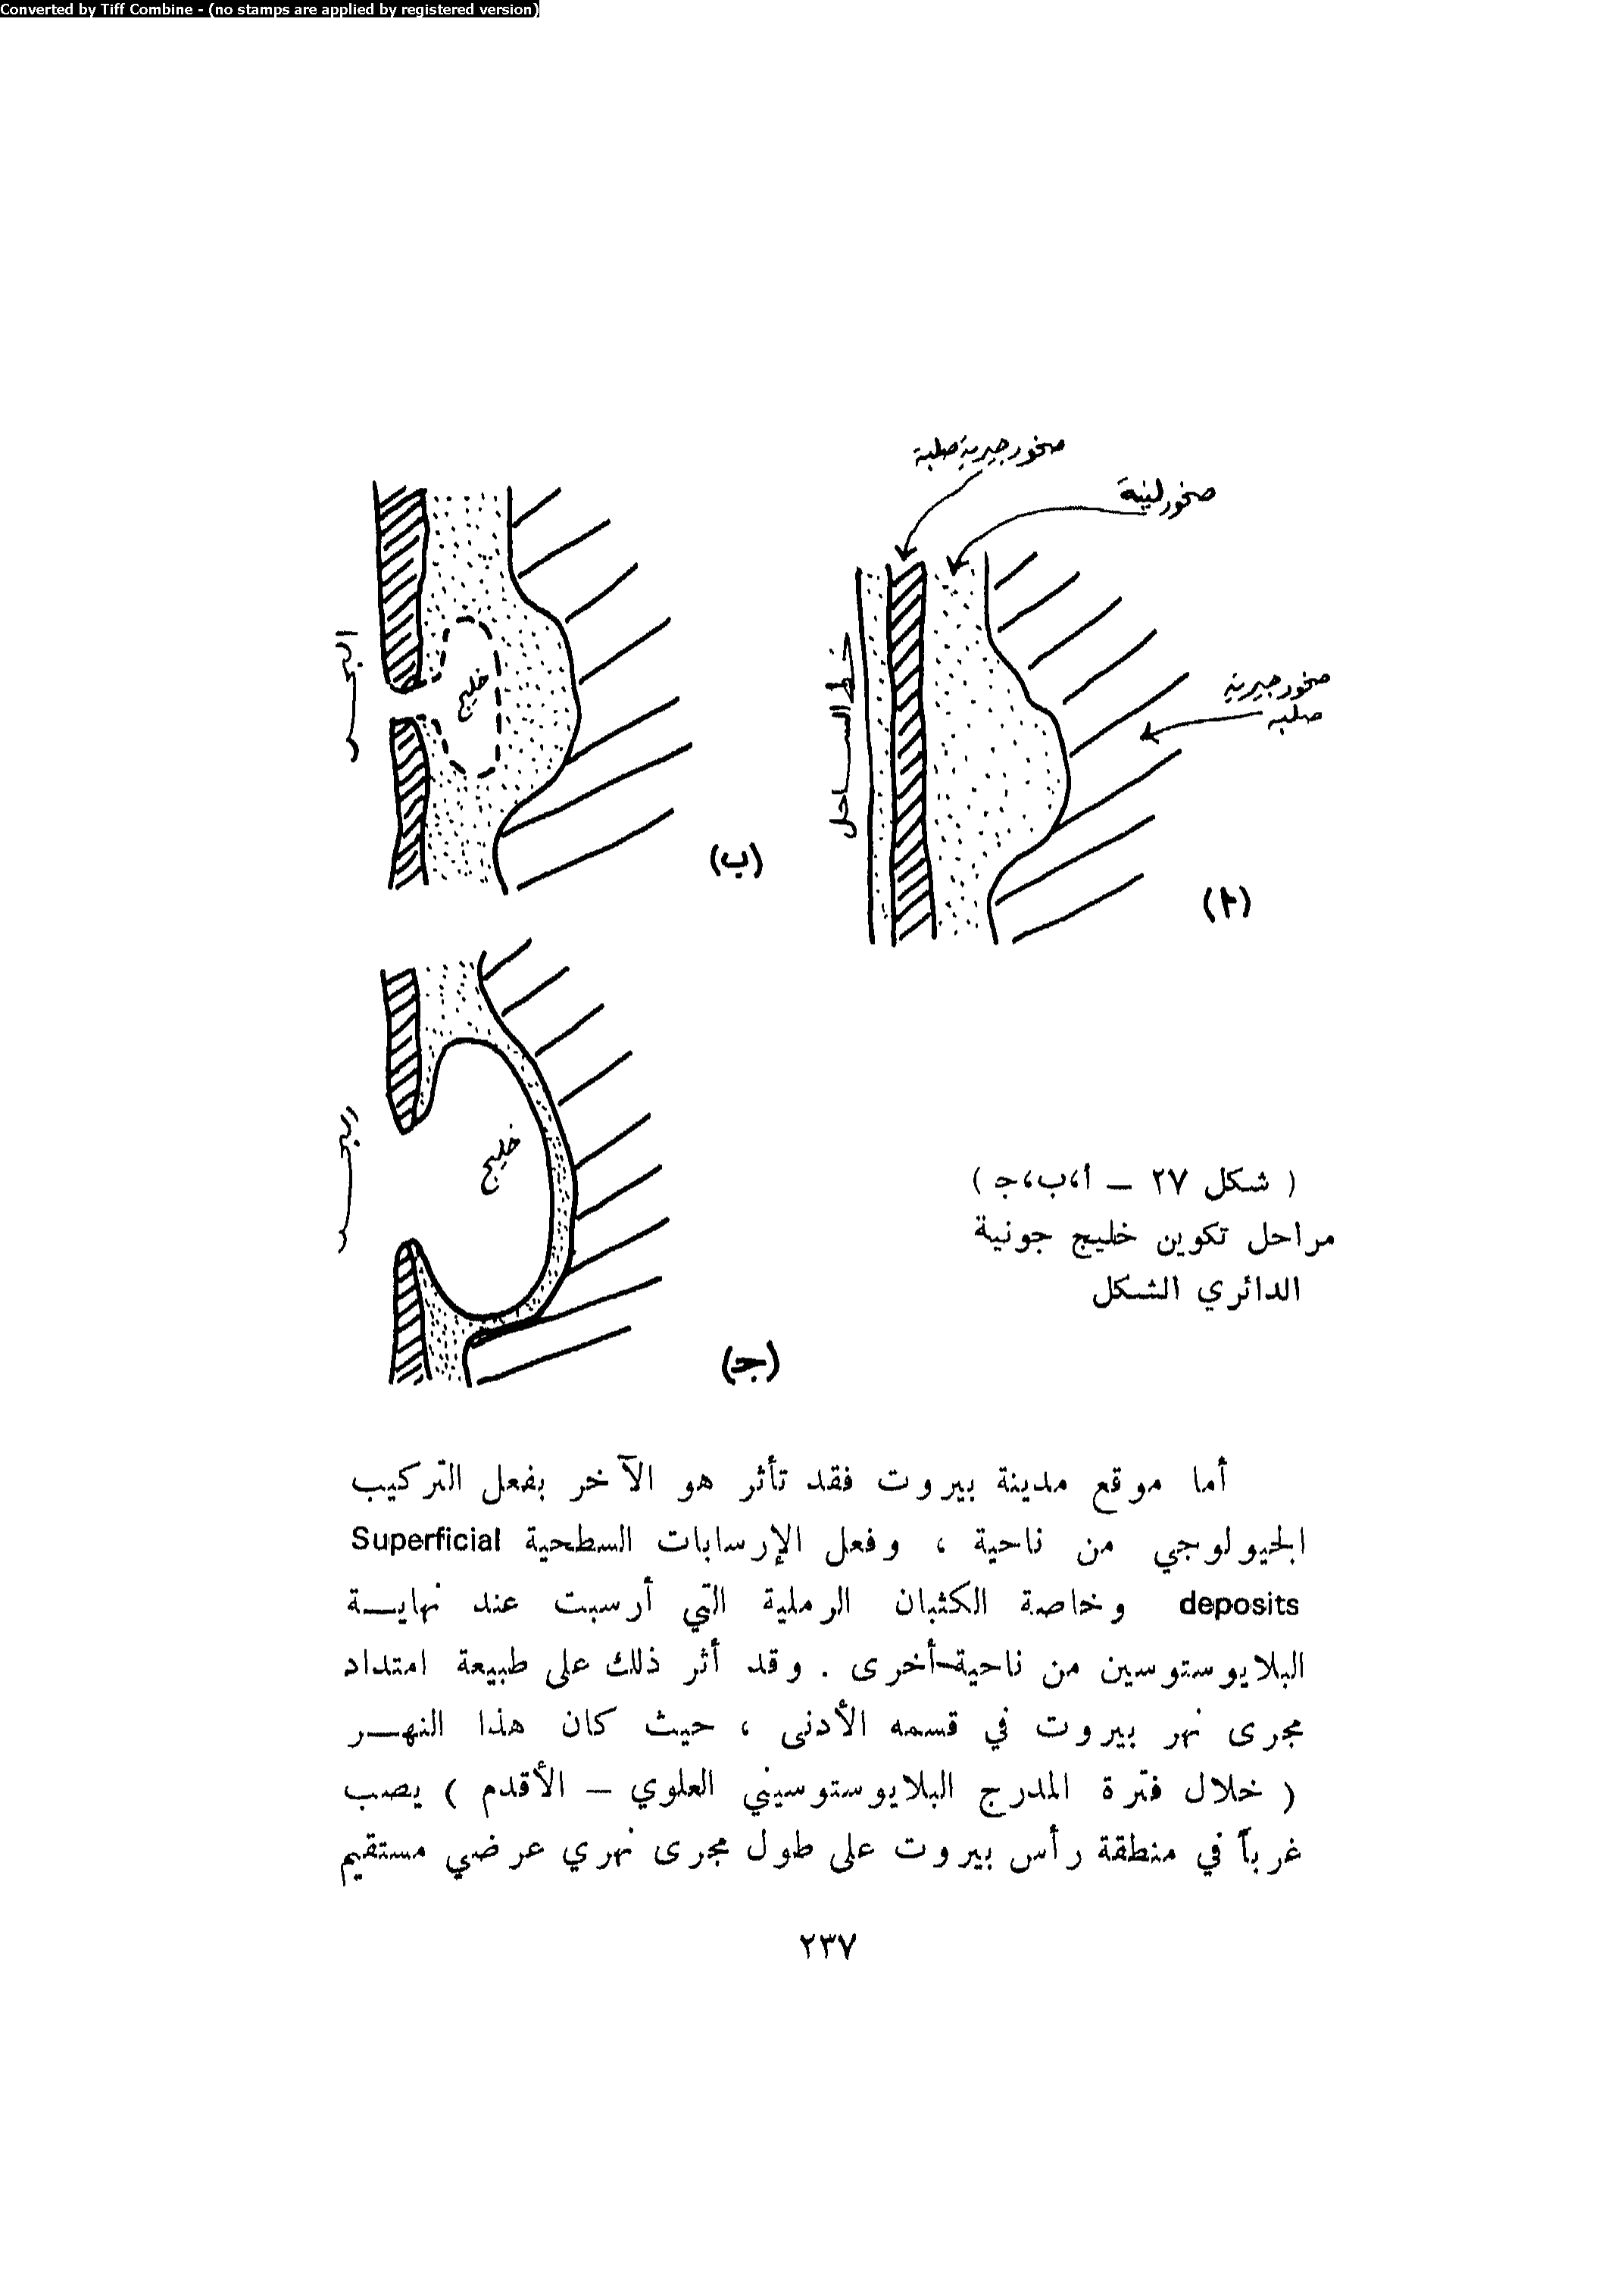 Converted by Tiff Combine - (no stamps are applied by registered version)
صخور جيرية صلبة
صخور لينة
صخور جيرية
صلبه
خط الساحل
(أ)
البحر
خليج
(ب)
البحر
خليج
(ج)
( شكل ٢٧ – أ،ب،ج )
مراحل تكوين خليج جونية
الدائري الشكل
أما موقع مدينة بيروت فقد تأثر هو الآخر بفعل التركيب
الجيولوجي من ناحية ، وفعل الإرسابات السطحية Superficial
deposits وخاصة الكثبان الرملية التي أرسبت عند نهايـــة
البلايوستوسين من ناحية أخرى . وقد أثر ذلك على طبيعة امتداد
مجرى نهر بيروت في قسمه الأدنى ، حيث كان هذا النهـــر
( خلال فترة المدرج البلايوستوسيني العلوي – الأقدم ) يصب
غرباً في منطقة رأس بيروت على طول مجرى نهري عرضي مستقيم
٢٣٧